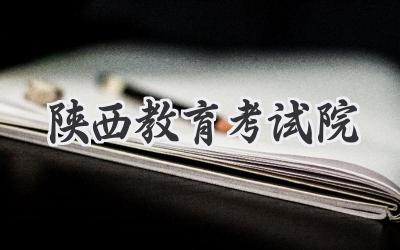 陕西教育考试院